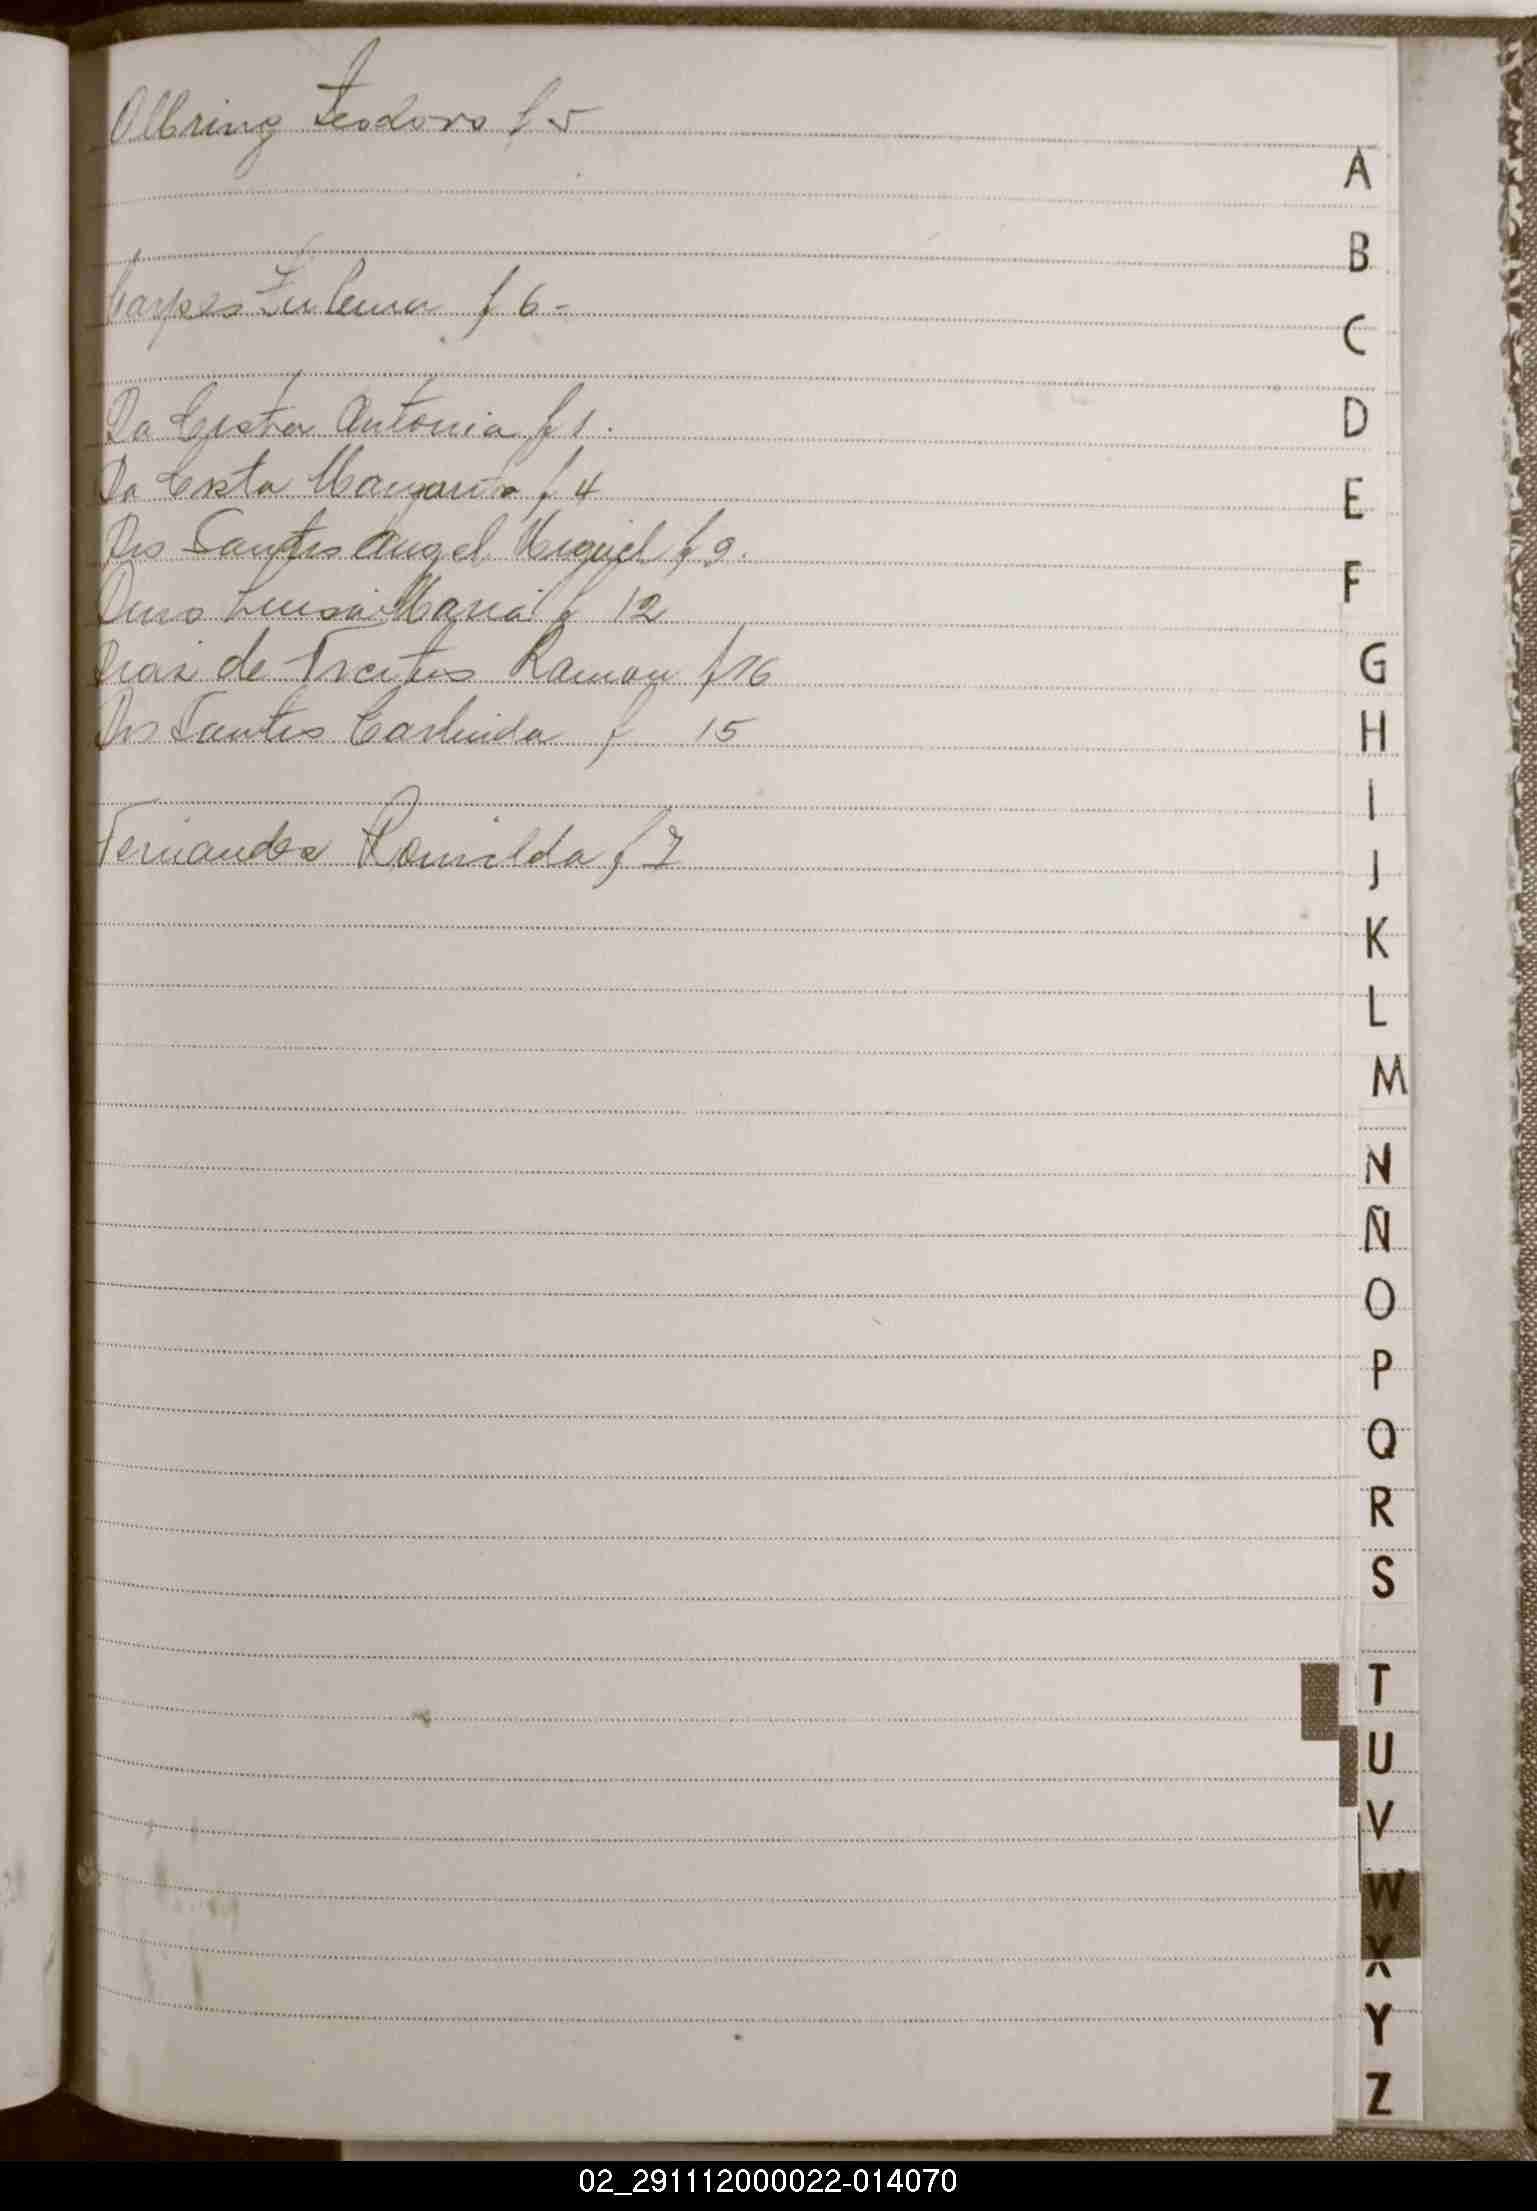 Olbring Teodoro f 5
Carpes Zulema f 6 -
Da Costa Antonia f 1.
Da Costa Margarita f 4
Dos Santos Angel Miguel f 9.
Luisa Maria f 12
de Freitas Ramon f 16
Dos Santos Carlinda f 15
Fernandez Romilda f 7
A
B
C
D
E
F
G
H
I
J
K
L
M
N
Ñ
O
P
Q
R
S
T
U
V
W
X
Y
Z
02_291112000022-014070